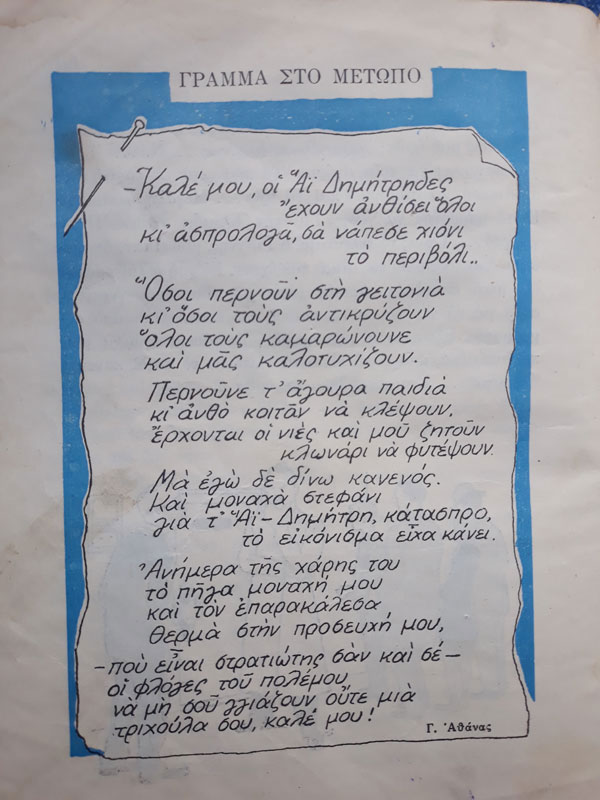 ΓΡΑΜΜΑ ΣΤΟ ΜΕΤΩΠΟ
-Καλέ μου, οἱ Ἅϊ Δημήτρηδες
ἔχουν ἀνθίσει ὅλοι
κι' ἀσπρολογᾶ, σὰ νάπεσε χιόνι
τὸ περιβόλι..
Ὅσοι περνοῦν στὴ γειτονιὰ
κι' ὅσοι τοὺς ἀντικρύζουν
ὅλοι τοὺς καμαρώνουνε
καὶ μᾶς καλοτυχίζουν.
Περνοῦνε τ' ἄγουρα παιδιὰ
κι' ἀνθὸ κοιτᾶν νὰ κλέψουν.
ἔρχονται οἱ νιὲς καὶ μοῦ ζητοῦν
κλωνάρι νὰ φυτέψουν.
Μὰ ἐγὼ δὲ δίνω κανενός.
Καὶ μοναχὰ στεφάνι
γιὰ τ' Ἅϊ-Δημήτρη, κάτασπρο,
τὸ εἰκόνισμα εἶχα κάνει.
Ἀνήμερα τῆς χάρης του
τὸ πῆγα μοναχή μου
καὶ τὸν ἐπαρακάλεσα
θερμὰ στὴν προσευχή μου,
-ποὺ εἶναι στρατιώτης σὰν καὶ σέ-
οἱ φλόγες τοῦ πολέμου
νὰ μὴ σοῦ γγιάζουν οὔτε μιὰ
τριχούλα σου, καλέ μου!
Γ. Ἀθάνας